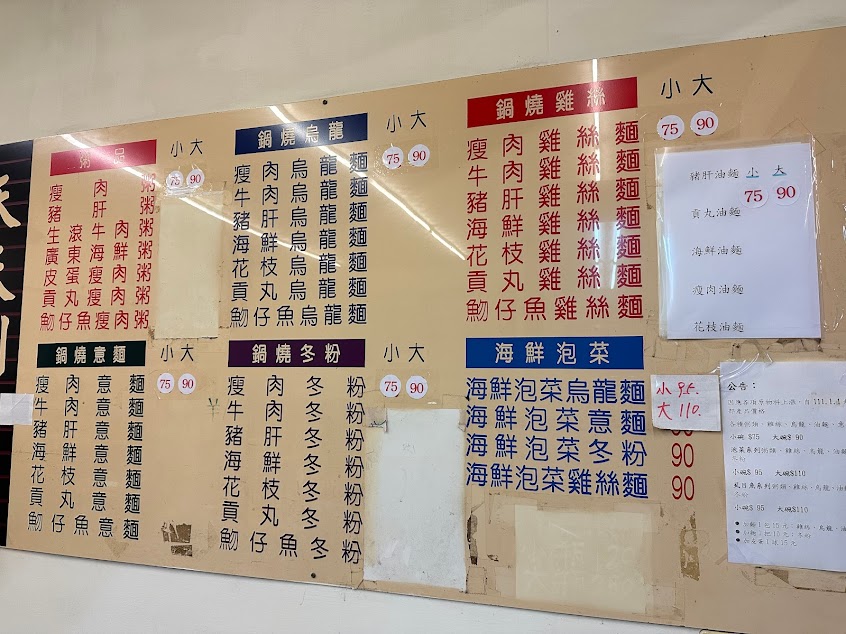 粥品
小 大
75 90
瘦肉粥
豬肝粥
生滾牛肉粥
廣東海鮮粥
皮蛋瘦肉粥
貢丸瘦肉粥
魩仔魚瘦肉粥
鍋燒烏龍
小 大
75 90
瘦肉烏龍麵
牛肉烏龍麵
豬肝烏龍麵
海鮮烏龍麵
花枝烏龍麵
貢丸烏龍麵
魩仔魚烏龍麵
鍋燒雞絲
小 大
75 90
瘦肉雞絲麵
牛肉雞絲麵
豬肝雞絲麵
海鮮雞絲麵
花枝雞絲麵
貢丸雞絲麵
魩仔魚雞絲麵
豬肝油麵 小 大
75 90
貢丸油麵
海鮮油麵
瘦肉油麵
花枝油麵
鍋燒意麵
小 大
75 90
瘦肉意麵
牛肉意麵
豬肝意麵
海鮮意麵
花枝意麵
貢丸意麵
魩仔魚意麵
鍋燒冬粉
小 大
75 90
瘦肉冬粉
牛肉冬粉
豬肝冬粉
海鮮冬粉
花枝冬粉
貢丸冬粉
魩仔魚冬粉
海鮮泡菜
海鮮泡菜烏龍麵
海鮮泡菜意麵
海鮮泡菜冬粉 90
海鮮泡菜雞絲麵 90
小 95.
大 110.
公告：
因應各項原物料上漲，自111.1.4
小碗$75 大碗$90
小碗$95 大碗$110
小碗$95 大碗$110